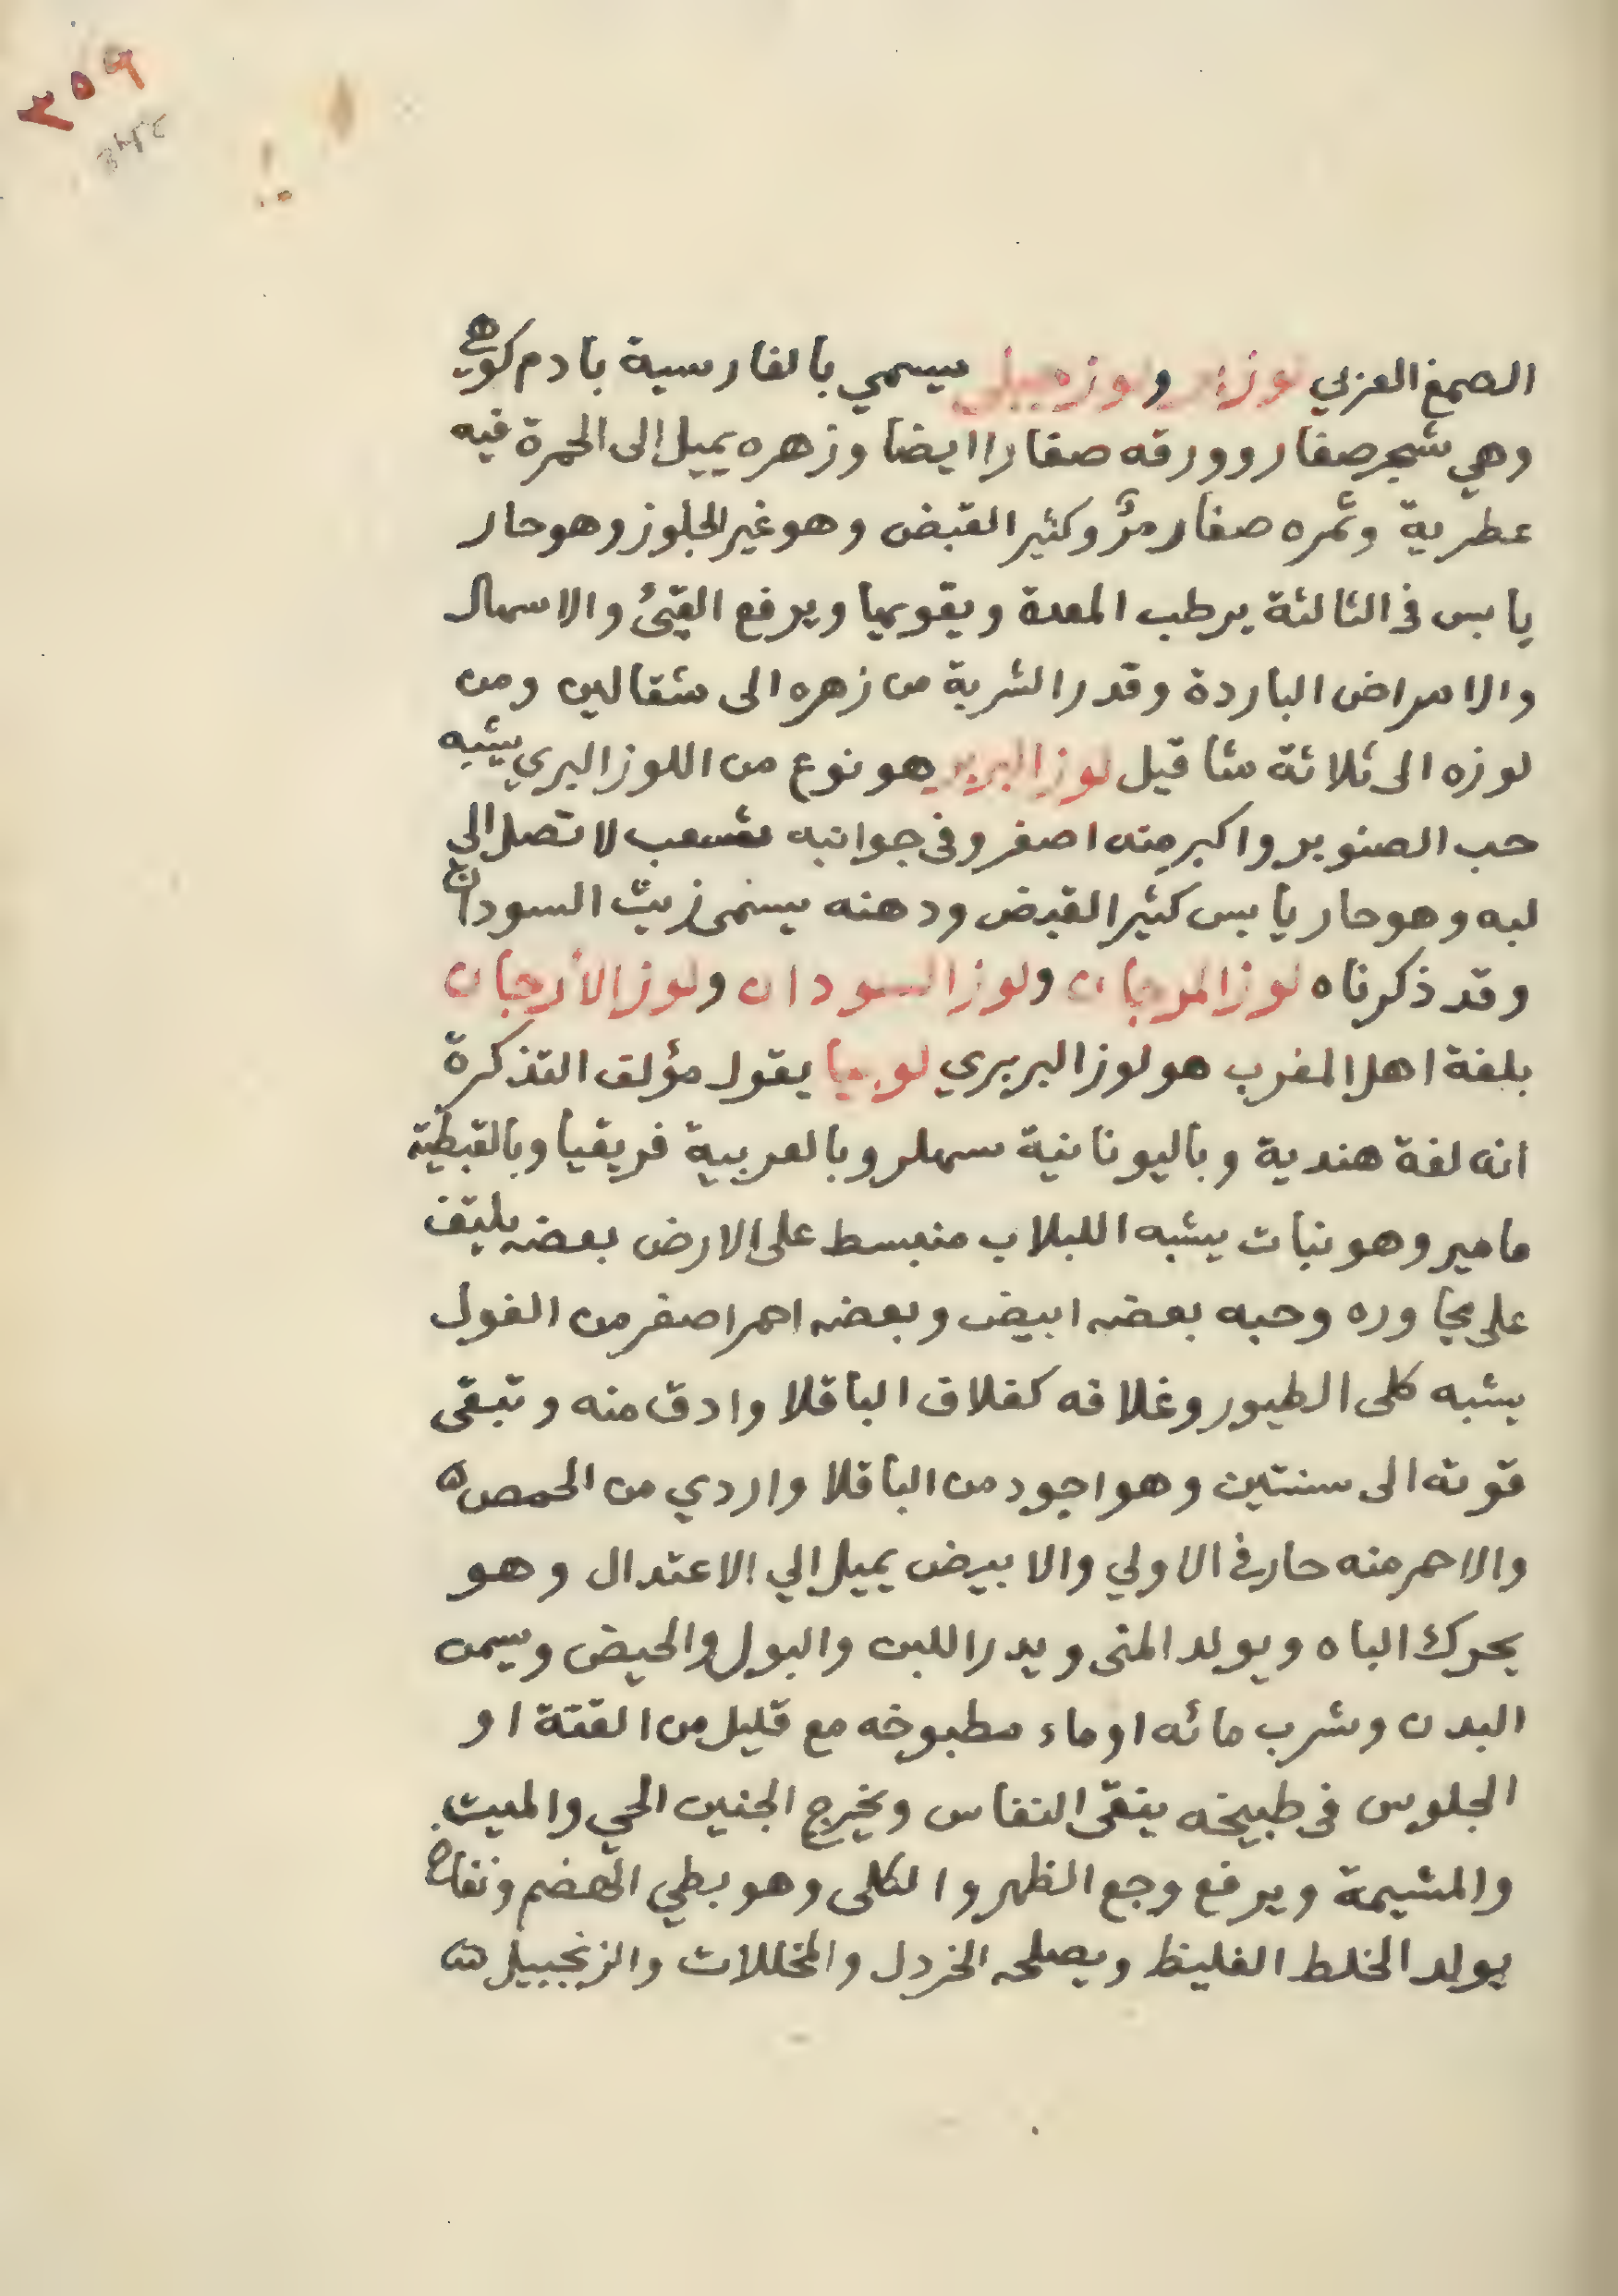 ٣٥٩
الصمغ العربي لوز بر ولوز جبلي يسمي بالفارسية بادم كوهي
وهي شجر صغار وورقه صغارا ايضا وزهره يميل الى الحمرة فيه
عطرية وثمره صغار مرّ وكثير القبض وهو غير الجلوز وهو حار
يابس في الثالثة يرطب المعدة ويقويها ويرفع القيئ والاسهال
والامراض الباردة وقدر الشربة من زهره الى مثقالين ومن
لوزه الى ثلاثة مثاقيل لوز البربر هو نوع من اللوز البري يشبه
حب الصنوبر واكبر منه اصفر وفي جوانبه تشعب لا تصل الى
لبه وهو حار يابس كثير القبض ودهنه يسمى زيت السودان
وقد ذكرناه لوز المرجان ولوز السودان ولوز الأرجان
بلغة اهل المغرب هو لوز البربري لوبيا يقول مؤلف التذكرة
انه لغة هندية وباليونانية سملر وبالعربية فريقيا وبالقبطية
مامير وهو نبات يشبه اللبلاب منبسط على الارض بعضه يلتف
على مجاوره وحبه بعضه ابيض وبعضه احمر اصغر من الفول
يشبه كلى الطيور وغلافه كغلاف الباقلا وادق منه وتبقى
قوته الى سنتين وهو اجود من الباقلا واردي من الحمص ه
والاحمر منه حار في الاولي والابيض يميل الي الاعتدال وهو
يحرك الباه ويولد المنى ويدر اللبن والبول والحيض ويسمن
البدن وشرب مائه او ماء مطبوخه مع قليل من القنة او
الجلوس في طبيخه ينقى النفاس ويخرج الجنين الحي والميت
والمشيمة ويرفع وجع الظهر والكلى وهو بطي الهضم ونفاخ
يولد الخلط الغليظ ويصلحه الخردل والمخللات والزنجبيل